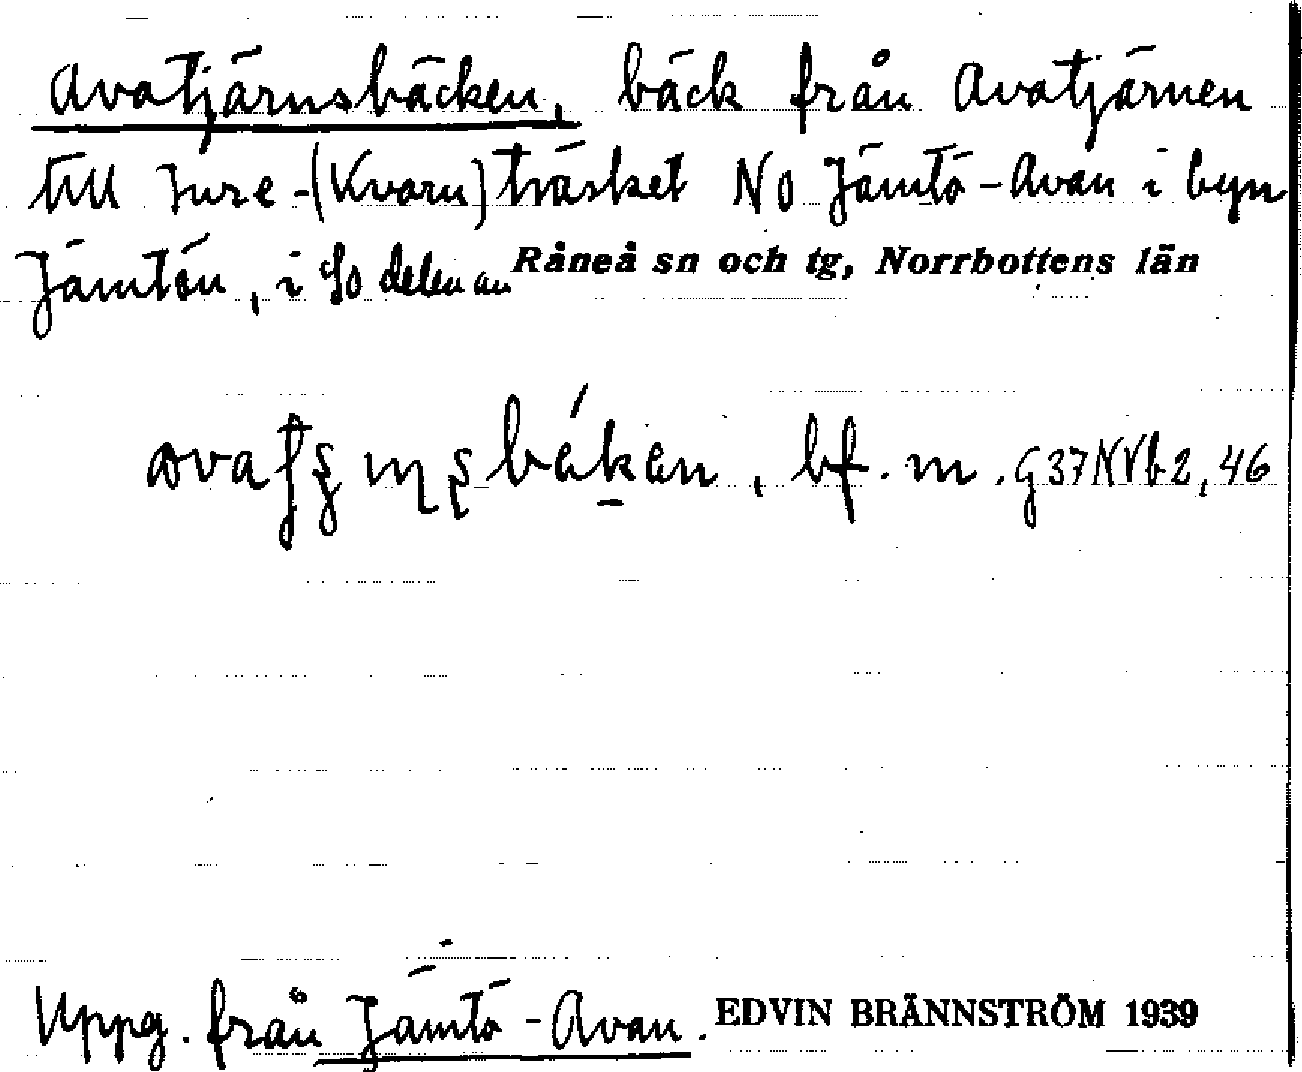 Avatjärnsbäcken, bäck från Avatjärnen
till Inre-(Kvarn)träsket NO Jämtö-Avan i byn
Jämtön, i So delen av Råneå sn och tg, Norrbottens län
bf. m. G37NVb2,46
Uppg. från Jämtö-Avan. EDVIN BRÄNNSTRÖM 1939